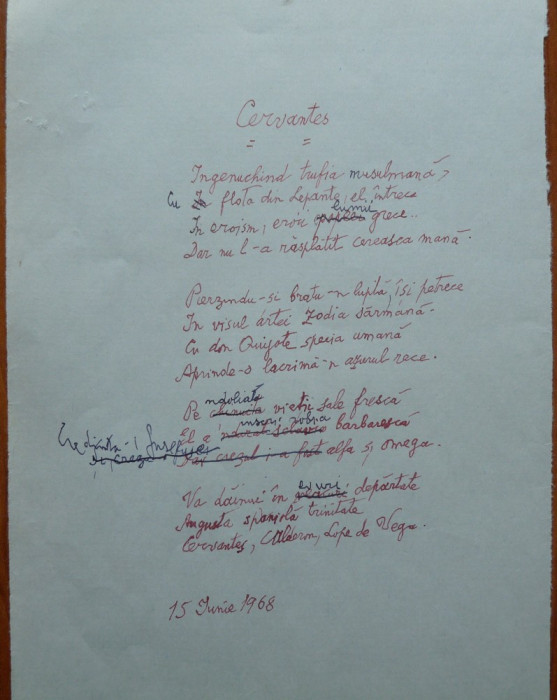 Cervantes
Ingenuchind trufia musulmană,
Cu flota din Lepante, el întrece
In eroism, eroii lumii grece..
Dar nu l-a răsplătit cereasca mană.
Pierzindu-si bratu-n luptă, își petrece
In visul artei Zodia sărmană.
Cu don Quijote specia umană
Aprinde-o lacrimă-n azurul rece.
Pe ndoliată vietii sale frescă
El a inscris robia barbarescă
Credinta-i alfa și omega.
Va dăinui în evuri depărtate
Augusta spaniolă trinitate
Cervantes, Calderon, Lope de Vega.
15 Iunie 1968